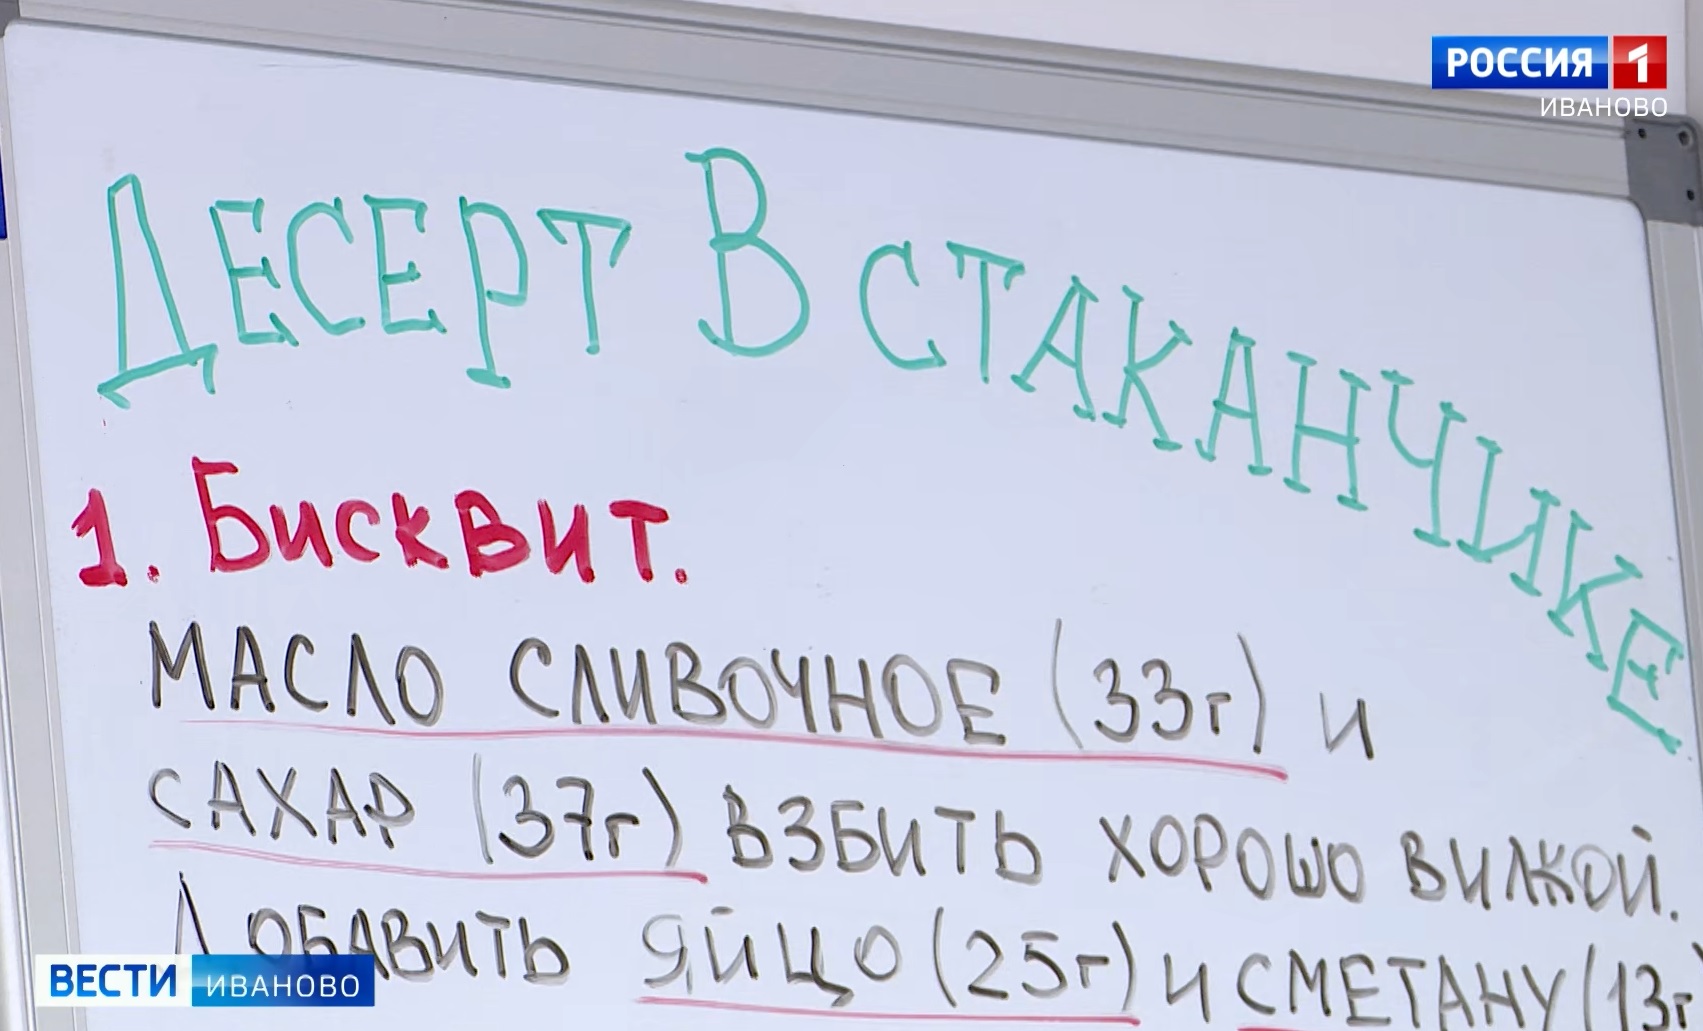 РОССИЯ 1
ИВАНОВО
ДЕСЕРТ В СТАКАНЧИКЕ
1. Бисквит.
МАСЛО СЛИВОЧНОЕ (33г) и
САХАР (37г) ВЗБИТЬ ХОРОШО ВИЛКОЙ.
ДОБАВИТЬ ЯЙЦО (25г) И СМЕТАНУ (13г)
ВЕСТИ ИВАНОВО